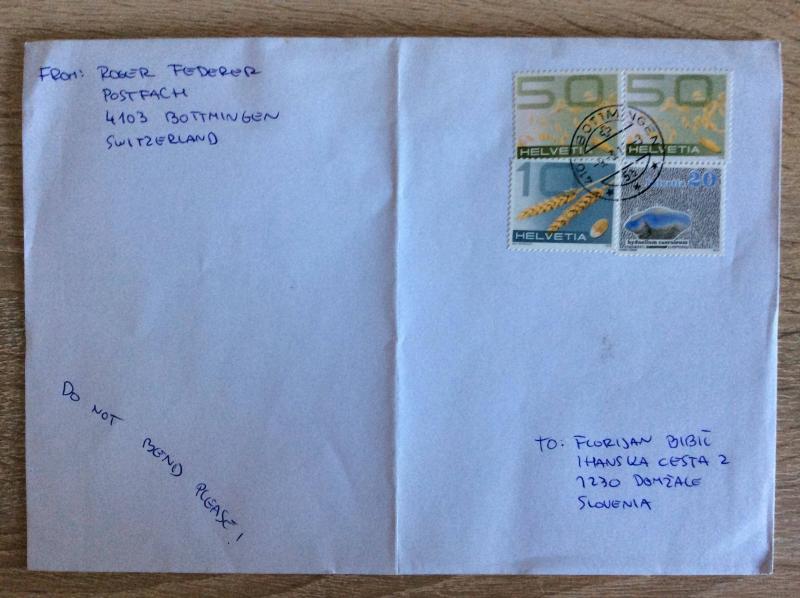 FROM: ROGER FEDERER
POSTFACH
4103 BOTTMINGEN
SWITZERLAND
50
HELVETIA
50
HELVETIA
4103 BOTTMINGEN
10
HELVETIA
helvetia 20
hydnellum caeruleum
DO NOT BEND PLEASE!
TO: FLORIJAN BIBIČ
IHANSKA CESTA 2
1230 DOMŽALE
SLOVENIA